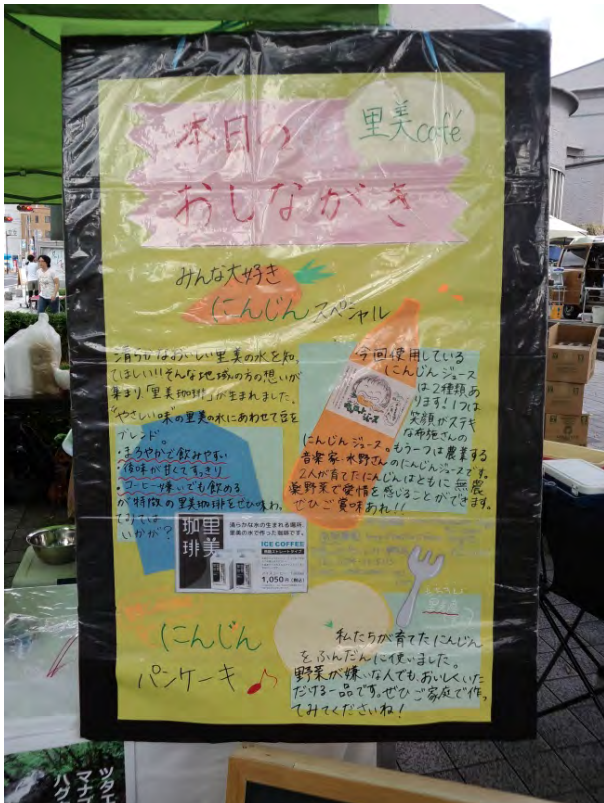 本日の
里美café
おしながき
みんな大好き
にんじんスペシャル
清らかなおいしい里美の水を知っ
てほしい!!そんな地域の方の想いが
集まり、「里美珈琲」が生まれました。
"やさしい味"の里美の水にあわせて豆を
ブレンド。
・まろやかで飲みやすい
・後味が甘くてすっきり
・コーヒー嫌いでも飲める
が特徴の里美珈琲をぜひ味わっ
てみては
いかが?
今回使用している
にんじんジュース
は2種類あ
ります!1つは
笑顔がステキ
な布施さんの
にんじんジュース。もう一つは農業する
音楽家・水野さんのにんじんジュースです。
2人が育てたにんじんはともに無農
薬野菜で愛情を感じることができます。
ぜひご賞味あれ!!
里美
珈琲
清らかな水の生まれる場所、
里美の水で作った珈琲です。
ICE COFFEE
1,050円(税込)
にんじん
パンケーキ♪
私たちが育てたにんじん
をふんだんに使いました。
野菜が嫌いな人でも、おいしくいた
だける一品です。ぜひご家庭で作っ
てみてくださいね!
ツタエ
マナブ
ハグ